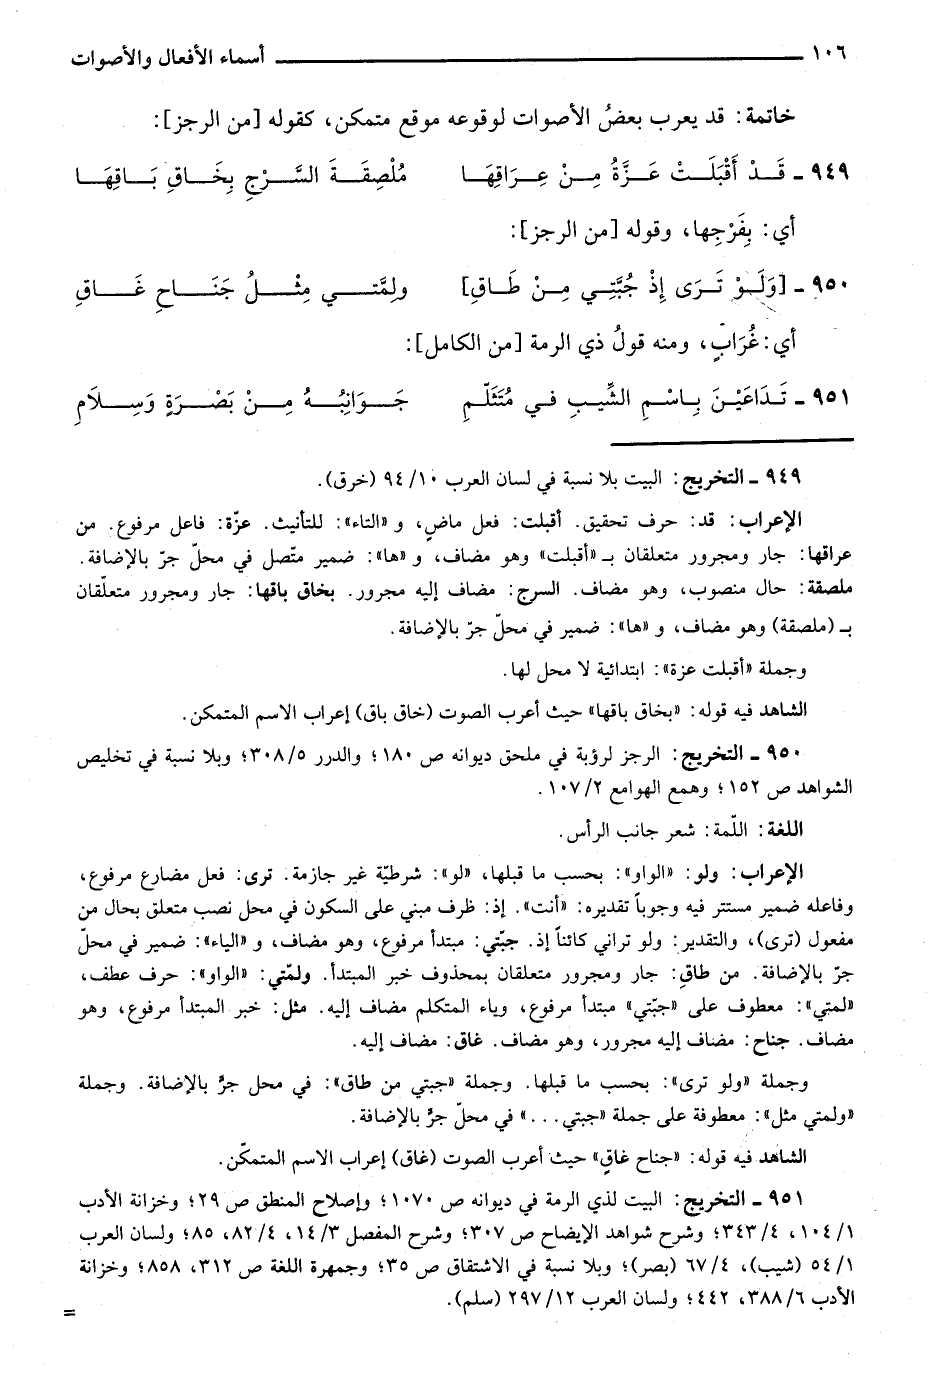 ١٠٦ ــــــ أسماء الأفعال والأصوات
خاتمة: قد يعرب بعضُ الأصوات لوقوعه موقع متمكن، كقوله [من الرجز]:
٩٤٩ ـ قَـدْ أَقْبَلَـتْ عَـزَّةُ مِـنْ عِـرَاقِهَـا مُلْصِقَـةَ السَّـرْجِ بِخَـاقِ بَـاقِهَـا
أي: بِفَرْجِها، وقوله [من الرجز]:
٩٥٠ ـ [وَلَـوْ تَـرَى إِذْ جُبَّتِي مِـنْ طَـاقِ] ولِمَّتـي مِثْـلُ جَنَـاحِ غَـاقِ
أي: غُرَابٍ، ومنه قولُ ذي الرمة [من الكامل]:
٩٥١ ـ تَـدَاعَيْـنَ بِـاسْمِ الشِّيبِ فـي مُتَثَلِّمٍ جَـوَانِبُـهُ مِـنْ بَصْـرَةٍ وَسِـلَامِ
٩٤٩ ـ التخريج: البيت بلا نسبة في لسان العرب ٩٤/١٠ (خرق).
الإعراب: قد: حرف تحقيق. أقبلت: فعل ماضٍ، و «التاء»: للتأنيث. عزّة: فاعل مرفوع. من
عراقها: جار ومجرور متعلقان بـ «أقبلت» وهو مضاف، و «ها»: ضمير متّصل في محلّ جرّ بالإضافة.
ملصقة: حال منصوب، وهو مضاف. السرج: مضاف إليه مجرور. بخاق باقها: جار ومجرور متعلّقان
بـ (ملصقة) وهو مضاف، و «ها»: ضمير في محلّ جرّ بالإضافة.
وجملة «أقبلت عزة»: ابتدائية لا محل لها.
الشاهد فيه قوله: «بخاق باقها» حيث أعرب الصوت (خاق باق) إعراب الاسم المتمكن.
٩٥٠ ـ التخريج: الرجز لرؤبة في ملحق ديوانه ص ١٨٠؛ والدرر ٣٠٨/٥؛ وبلا نسبة في تخليص
الشواهد ص ١٥٢؛ وهمع الهوامع ١٠٧/٢.
اللغة: اللّمة: شعر جانب الرأس.
الإعراب: ولو: «الواو»: بحسب ما قبلها، «لو»: شرطيّة غير جازمة. ترى: فعل مضارع مرفوع،
وفاعله ضمير مستتر فيه وجوباً تقديره: «أنت». إذ: ظرف مبني على السكون في محل نصب متعلق بحال من
مفعول (ترى)، والتقدير: ولو تراني كائناً إذ. جبّتي: مبتدأ مرفوع، وهو مضاف، و «الياء»: ضمير في محلّ
جرّ بالإضافة. من طاقِ: جار ومجرور متعلقان بمحذوف خبر المبتدأ. ولمّتي: «الواو»: حرف عطف،
«لمتي»: معطوف على «جبّتي» مبتدأ مرفوع، وياء المتكلم مضاف إليه. مثل: خبر المبتدأ مرفوع، وهو
مضاف. جناح: مضاف إليه مجرور، وهو مضاف. غاق: مضاف إليه.
وجملة «ولو ترى»: بحسب ما قبلها. وجملة «جبتي من طاق»: في محل جرٍّ بالإضافة. وجملة
«ولمتي مثل»: معطوفة على جملة «جبتي . . . » في محلّ جرٍّ بالإضافة.
الشاهد فيه قوله: «جناح غاقِ» حيث أعرب الصوت (غاق) إعراب الاسم المتمكّن.
٩٥١ ـ التخريج: البيت لذي الرمة في ديوانه ص ١٠٧٠؛ وإصلاح المنطق ص ٢٩؛ وخزانة الأدب
١٠٤/١، ٣٤٣/٤؛ وشرح شواهد الإيضاح ص ٣٠٧؛ وشرح المفصل ١٤/٣، ٨٢/٤، ٨٥؛ ولسان العرب
٥٤/١ (شيب)، ٦٧/٤ (بصر)؛ وبلا نسبة في الاشتقاق ص ٣٥؛ وجمهرة اللغة ص ٣١٢، ٨٥٨؛ وخزانة
الأدب ٣٨٨/٦، ٤٤٢؛ ولسان العرب ٢٩٧/١٢ (سلم).
=